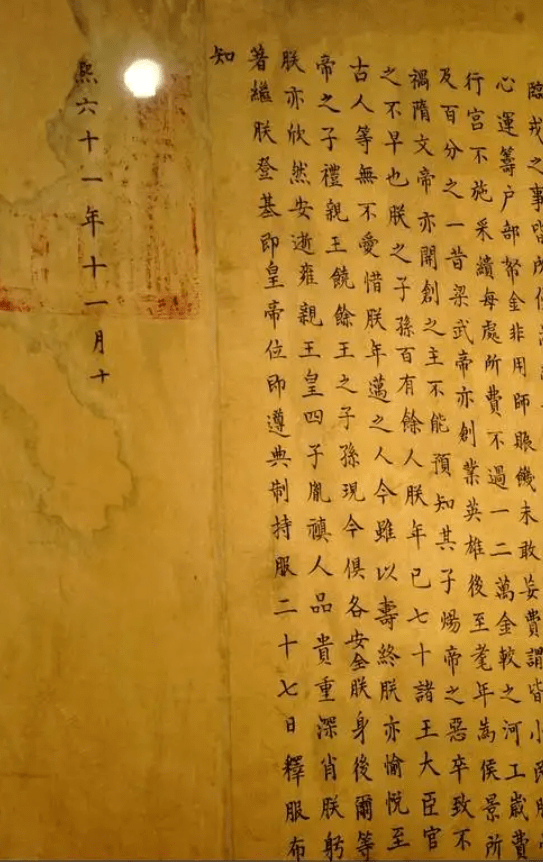 臨戎之事皆所
心運籌戶部帑金非用師賑饑未敢妄費謂皆小民脂
行宮不施采繢每處所費不過一二萬金較之河工歲費
及百分之一昔梁武帝亦創業英雄後至耄年為侯景所
禍隋文帝亦開創之主不能預知其子煬帝之惡卒致不
之不早也朕之子孫百有餘人朕年已七十諸王大臣官
古人等無不愛惜朕年邁之人今雖以壽終朕亦愉悅至
帝之子禮親王饒餘王之子孫現今俱各安全朕身後爾等
朕亦欣然安逝雍親王皇四子胤禛人品貴重深肖朕躬
著繼朕登基即皇帝位即遵典制持服二十七日釋服布
知
熙六十一年十一月十